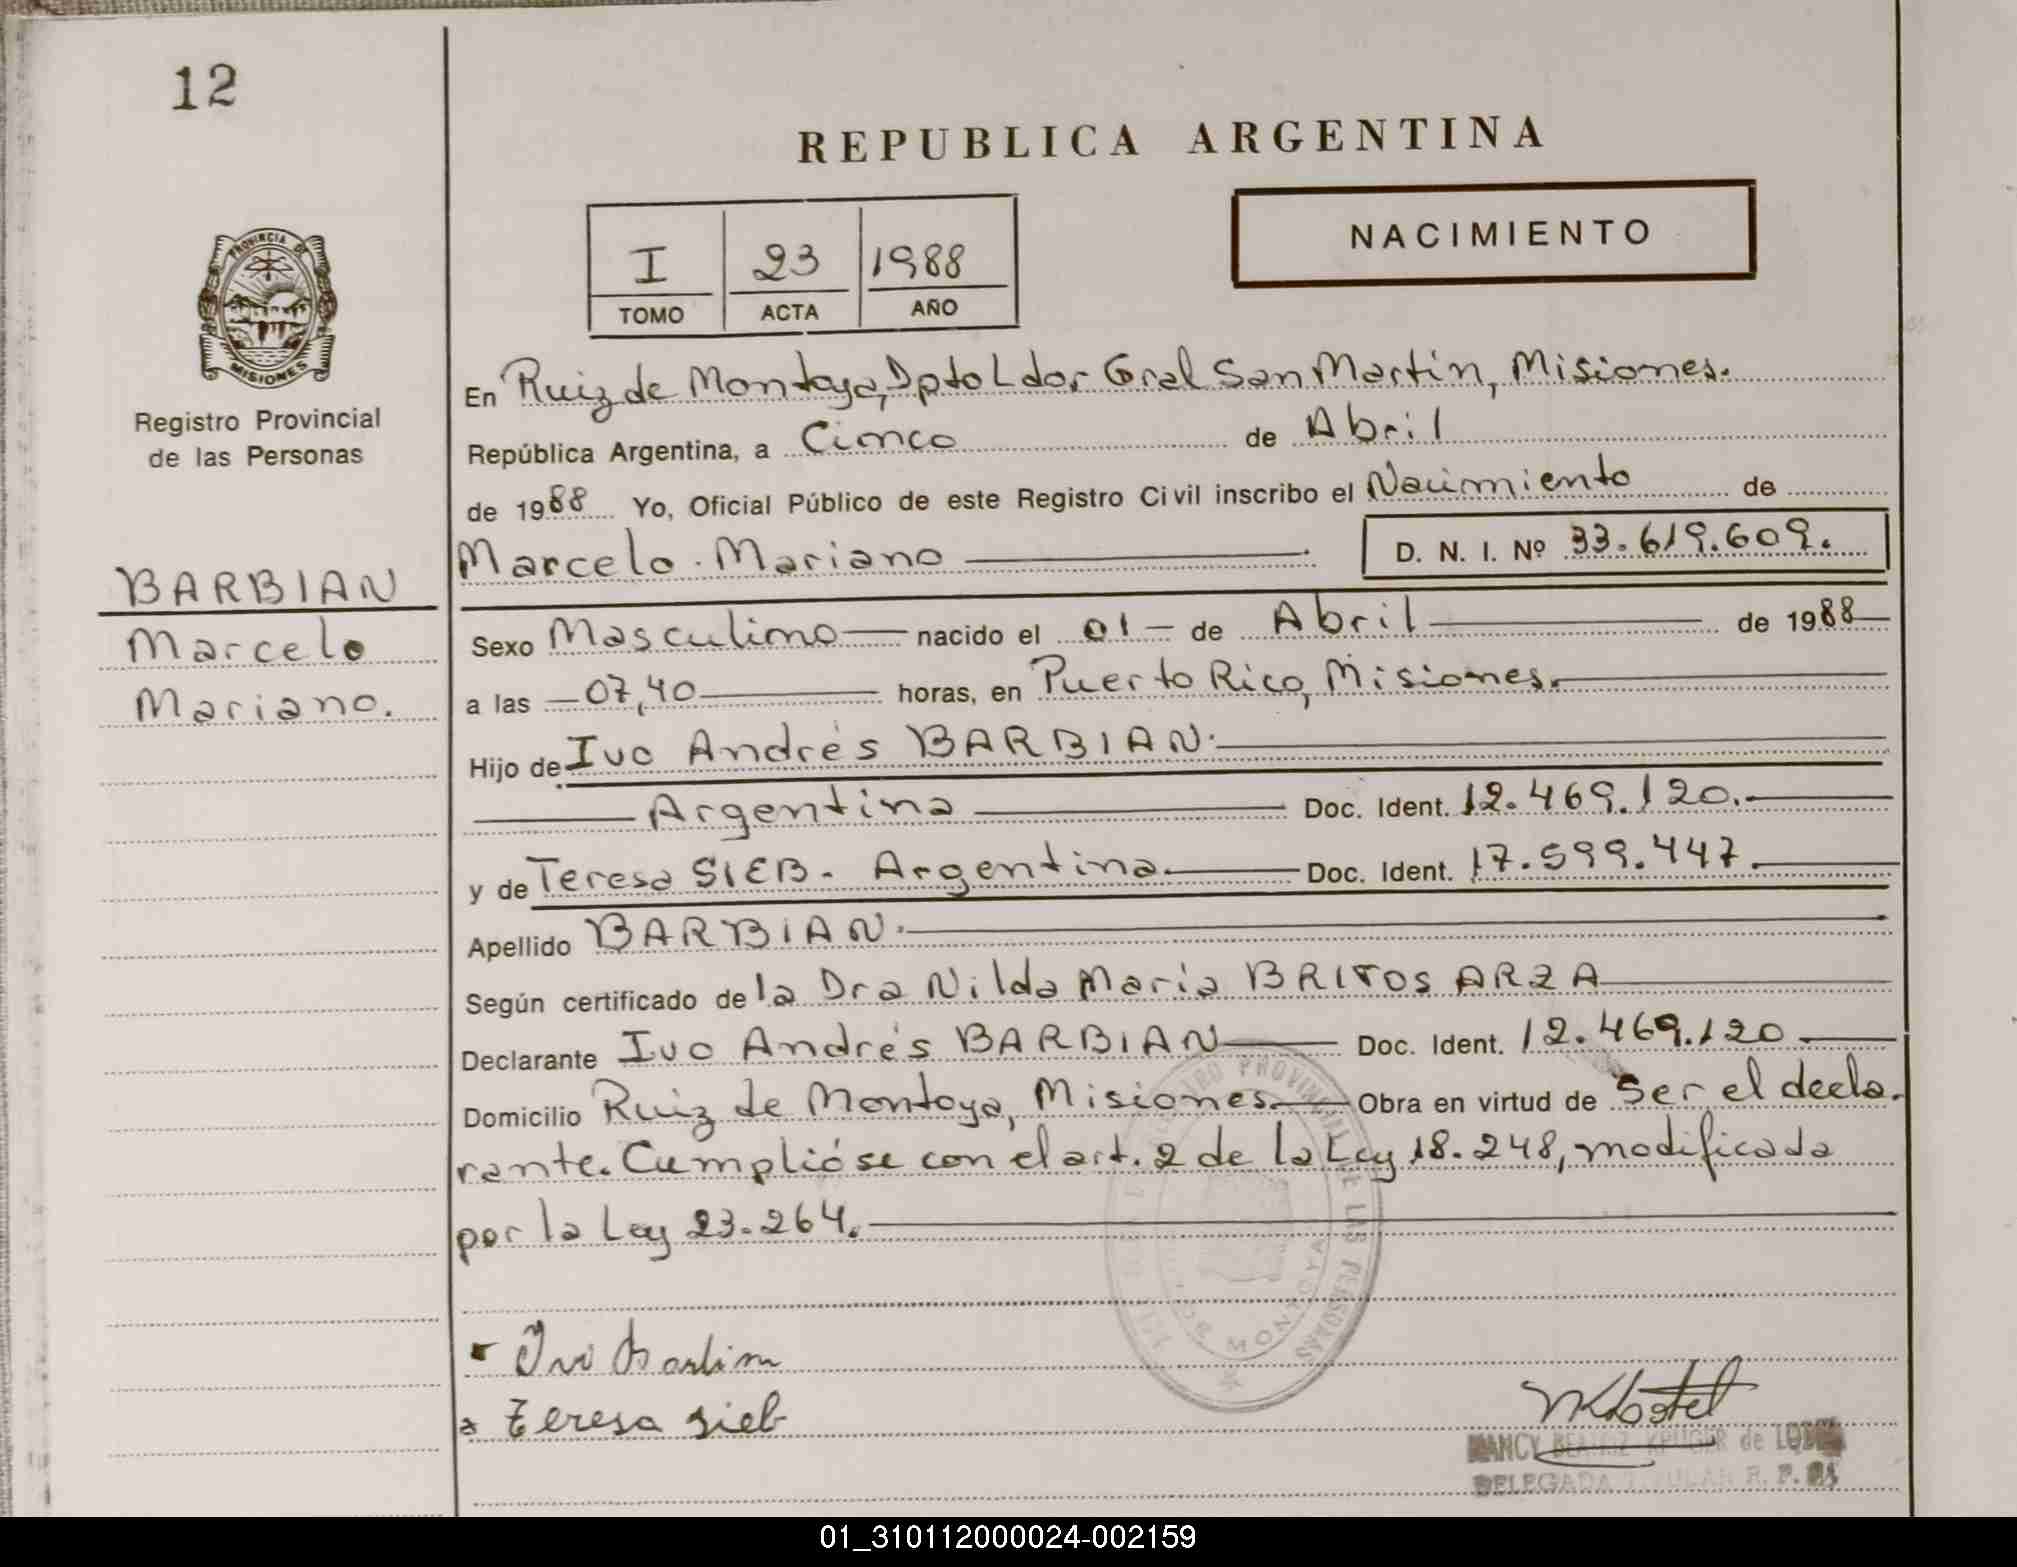 12
REPUBLICA ARGENTINA
NACIMIENTO
I 23 1988
TOMO ACTA AÑO
PROVINCIA DE
MISIONES
Registro Provincial
de las Personas
BARBIAN
Marcelo
Mariano.
En Ruiz de Montoya, Dpto Ldor Gral San Martín, Misiones.
República Argentina, a Cinco de Abril
de 1988 Yo, Oficial Público de este Registro Civil inscribo el Nacimiento de
Marcelo Mariano D. N. I. Nº 33.619.609.
Sexo Masculino nacido el 01 de Abril de 1988
a las 07,40 horas, en Puerto Rico, Misiones.
Hijo de Ivo Andrés BARBIAN.
Argentina Doc. Ident. 12.469.120.
y de Teresa SIEB. Argentina Doc. Ident. 17.599.447.
Apellido BARBIAN.
Según certificado de la Dra Nilda María BRITOS ARZA
Declarante Ivo Andrés BARBIAN Doc. Ident. 12.469.120
Domicilio Ruiz de Montoya, Misiones. Obra en virtud de Ser el decla-
rante. Cumplióse con el art. 2 de la Ley 18.248, modificada
por la Ley 23.264.
REGISTRO PROVINCIAL DE LAS PERSONAS
DE MONTOYA
teresa sieb
NANCY BEATRIZ KRUGER de
DELEGADA TITULAR R. P.
01_310112000024-002159